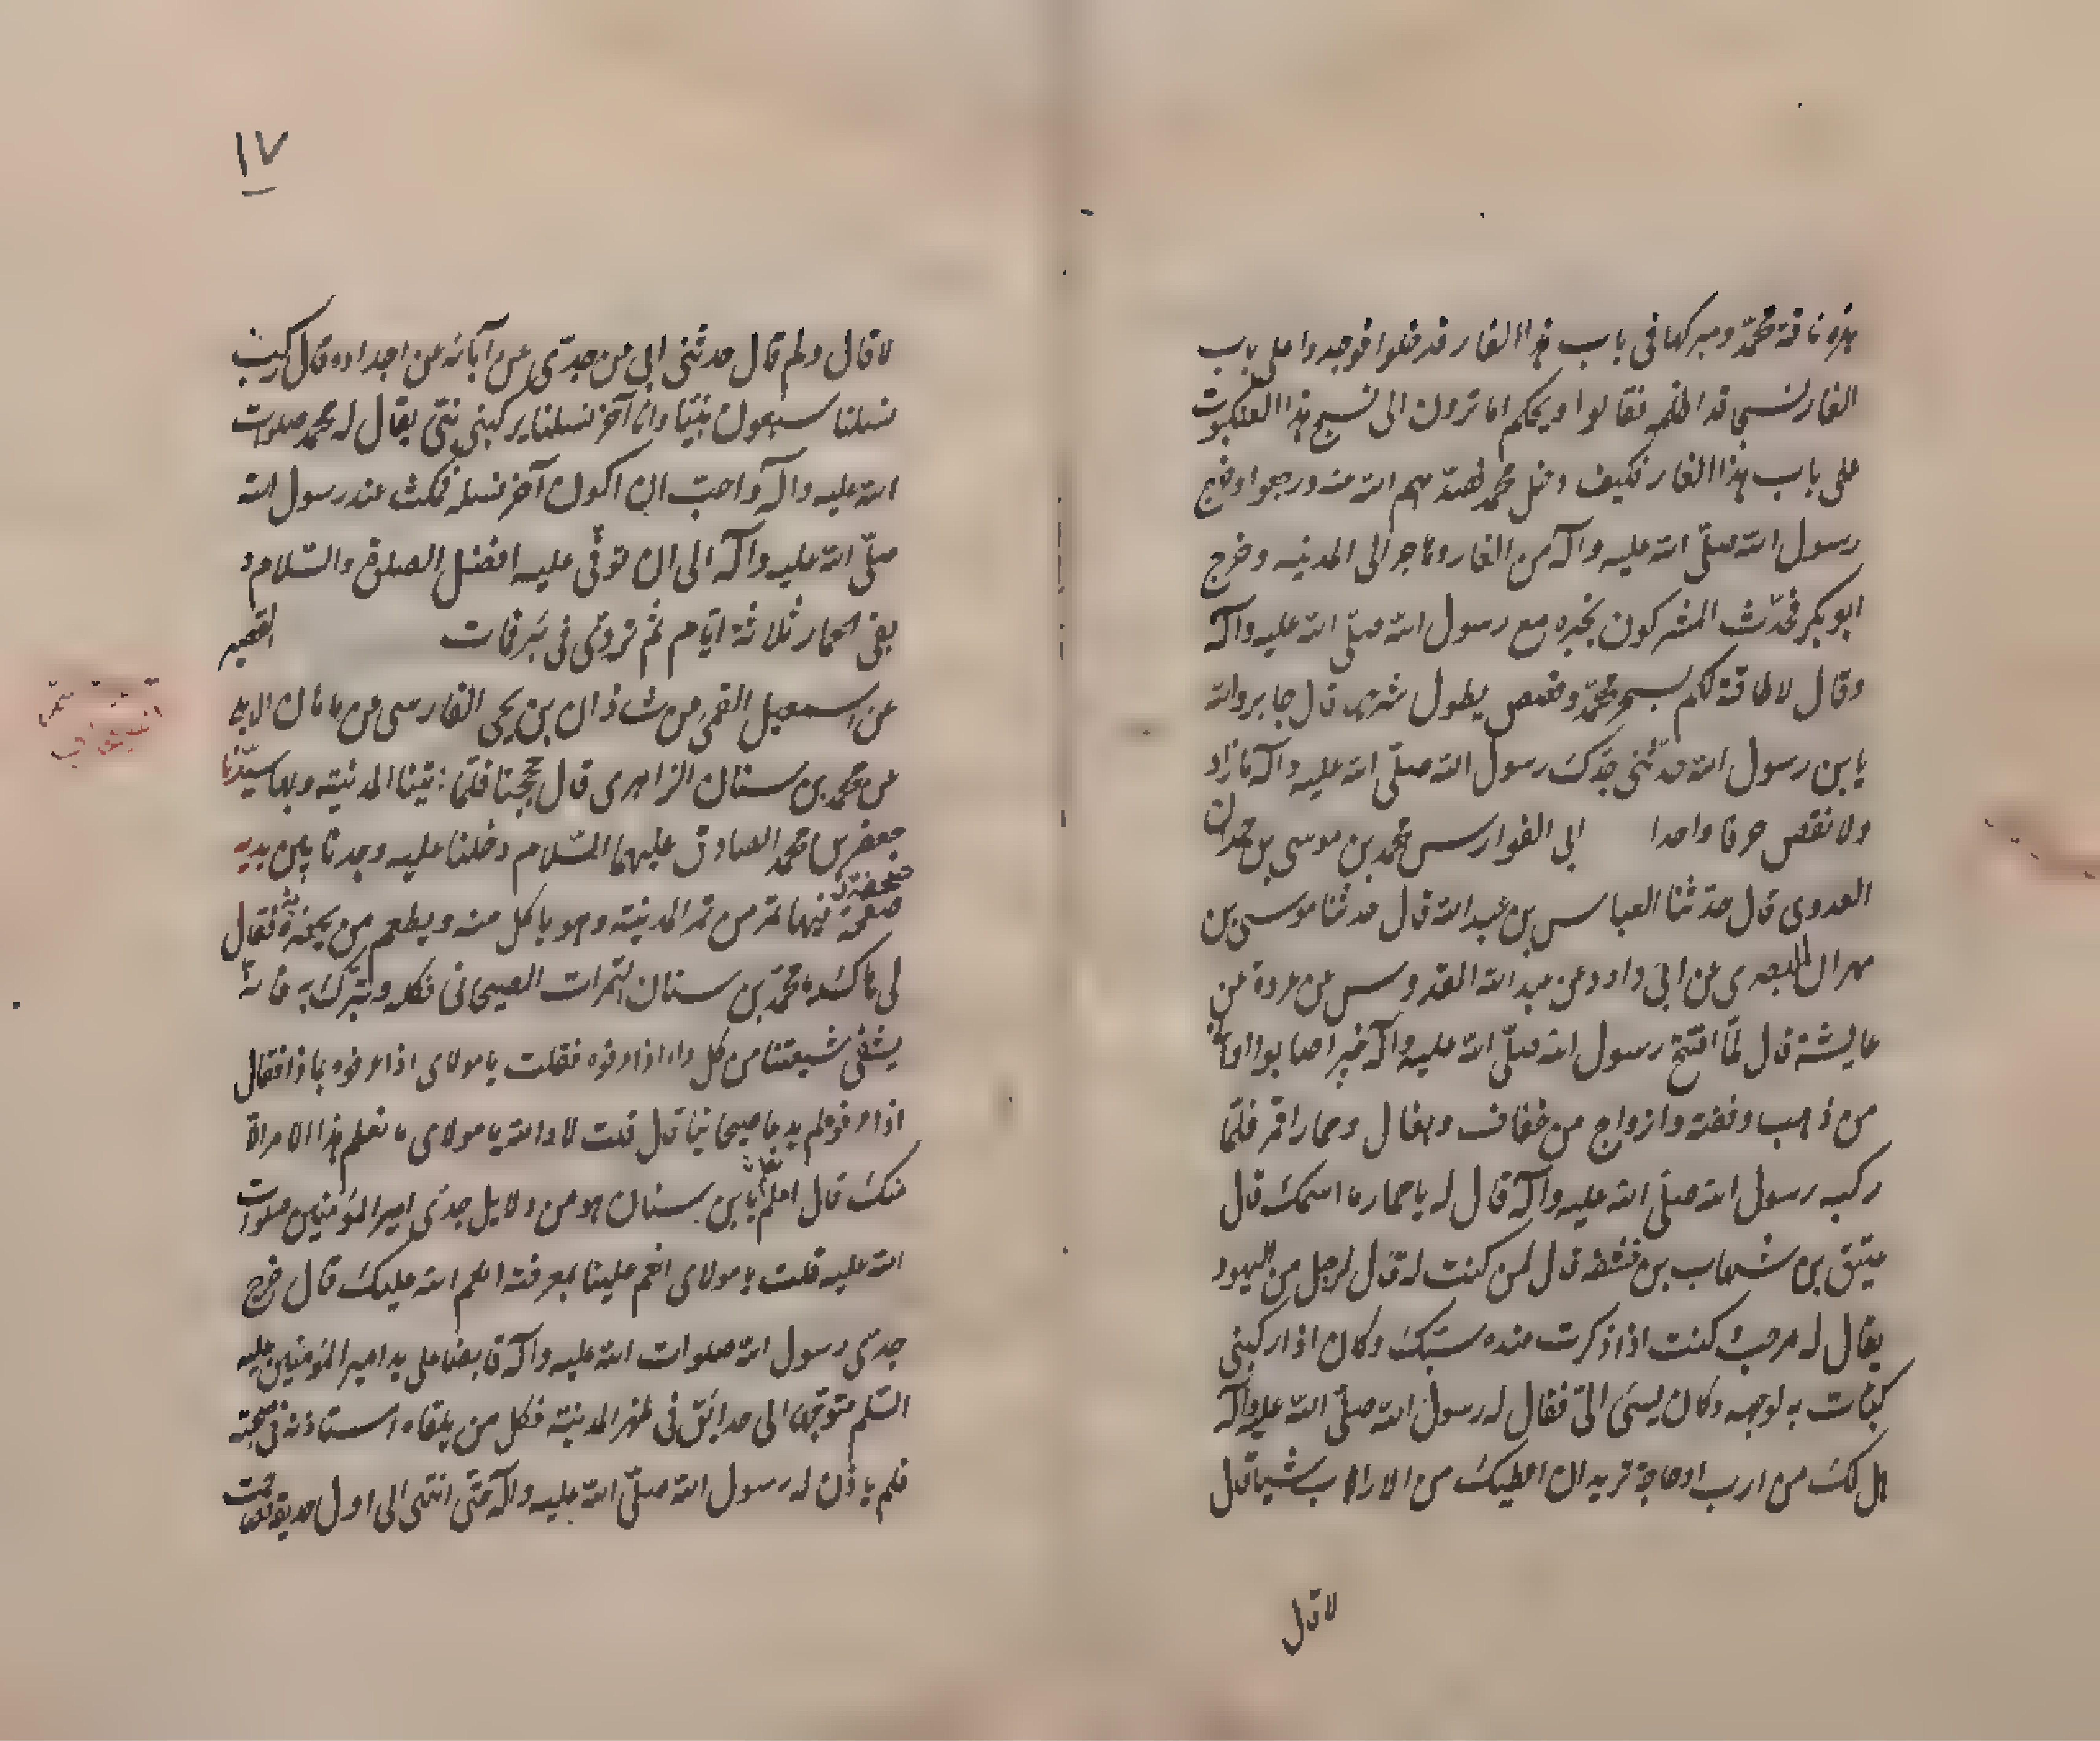 هذه ناقة محمد ومبركها فى باب هذا الغار فدخلوا فوجدوا على باب
الغار نسجا قد اظلم فقالوا ويحكم اما ترون الى نسج هذا العنكبوت
على باب هذا الغار فكيف دخل محمد فصدهم الله عنه ورجعوا وخرج
رسول الله صلّى الله عليه وآله من الغار وهاجر الى المدينه وخرج
ابو بكر فحدّث المشركون بخبره مع رسول الله صلّى الله عليه وآله
وقال لا طاقة لكم بسحر محمّد وقصص يطول شرحها قال جابر والله
يا بن رسول الله حدّثنى جدّك رسول الله صلّى الله عليه وآله ما زاد
ولا نقص حرفا واحدا ابى الفوارس محمد بن موسى بن حمدان
العدوى قال حدّثنا العباس بن عبدالله قال حدثنا موسى بن
مهران البصرى عن ابى داود عن عبدالله القدوس عن عروة عن
عايشة قال لمّا افتتح رسول الله صلّى الله عليه وآله خيبر اصابوا اوانى
من ذهب وفضة وازواج من خفاف وبغال وحمار اقمر فلمّا
ركبه رسول الله صلّى الله عليه وآله قال له يا حمار ما اسمك قال
عتيق بن شهاب بن حنشفه قال لمن كنت له قال لرجل من اليهود
يقال له مرحب كنت اذا ذكرت عنده سبّك وكان اذا ركبنى
كبات به لوجهه وكان يسئ الىّ فقال له رسول الله صلّى الله عليه وآله
هل لك من ارب او حاجة تريد ان اعطيك من الاراب شيئا قال
لا قال
١٧
لا قال ولم قال حدثنى ابى من جدّى عن آبائه عن اجداده قال ركب
نسلنا سبعون نبيّا وانّ آخر نسلنا يركبنى نبىّ يقال له محمد صلوات
الله عليه وآله واحبّ ان اكون آخر نسله فمكث عند رسول الله
صلّى الله عليه وآله الى ان توفّى عليه افضل الصلوة والسّلام و
بقى الحمار ثلاثة ايّام ثم تردّى فى بئر فات القصير
عن اسمعيل القمى من شاذان بن يحى الفارسى من ماهان الابلى
عن محمد بن سنان الزاهرى قال حججنا فلمّا اتينا المدينة وبها سيّدنا
جعفر بن محمد الصادق عليهما السّلام دخلنا عليه وجدنا بين يديه
صحفة
صحفة فيها تمر من تمر المدينة وهو ياكل منه ويطعم من بحضرته فقال
لى هاك يا محمّد بن سنان التمرات الصيحانى فكله وتبرّك به فانه
يشفى شيعتنا من كل داء اذا عرفوه فقلت يا مولاى اذا عرفوه بماذا فقال
اذا عرفوه لم يدعا صيحانيا قال قلت لا والله يا مولاى ما نعلم هذا الامر الا
منك قال اعلم يا بن سنان هو من دلايل جدّى امير المؤمنين صلوات
الله عليه قلت يا مولاى انعم علينا بمعرفته انعم الله عليك قال خرج
جدّى رسول الله صلوات الله عليه وآله قابضا على يد امير المؤمنين عليه
السّلم متوجّها الى حدايق فى ظهر المدينة فكل من يلقاه استاذنه فى صحبته
فلم ياذن له رسول الله صلّى الله عليه وآله حتّى انتهى الى اول حديقة فصاحت